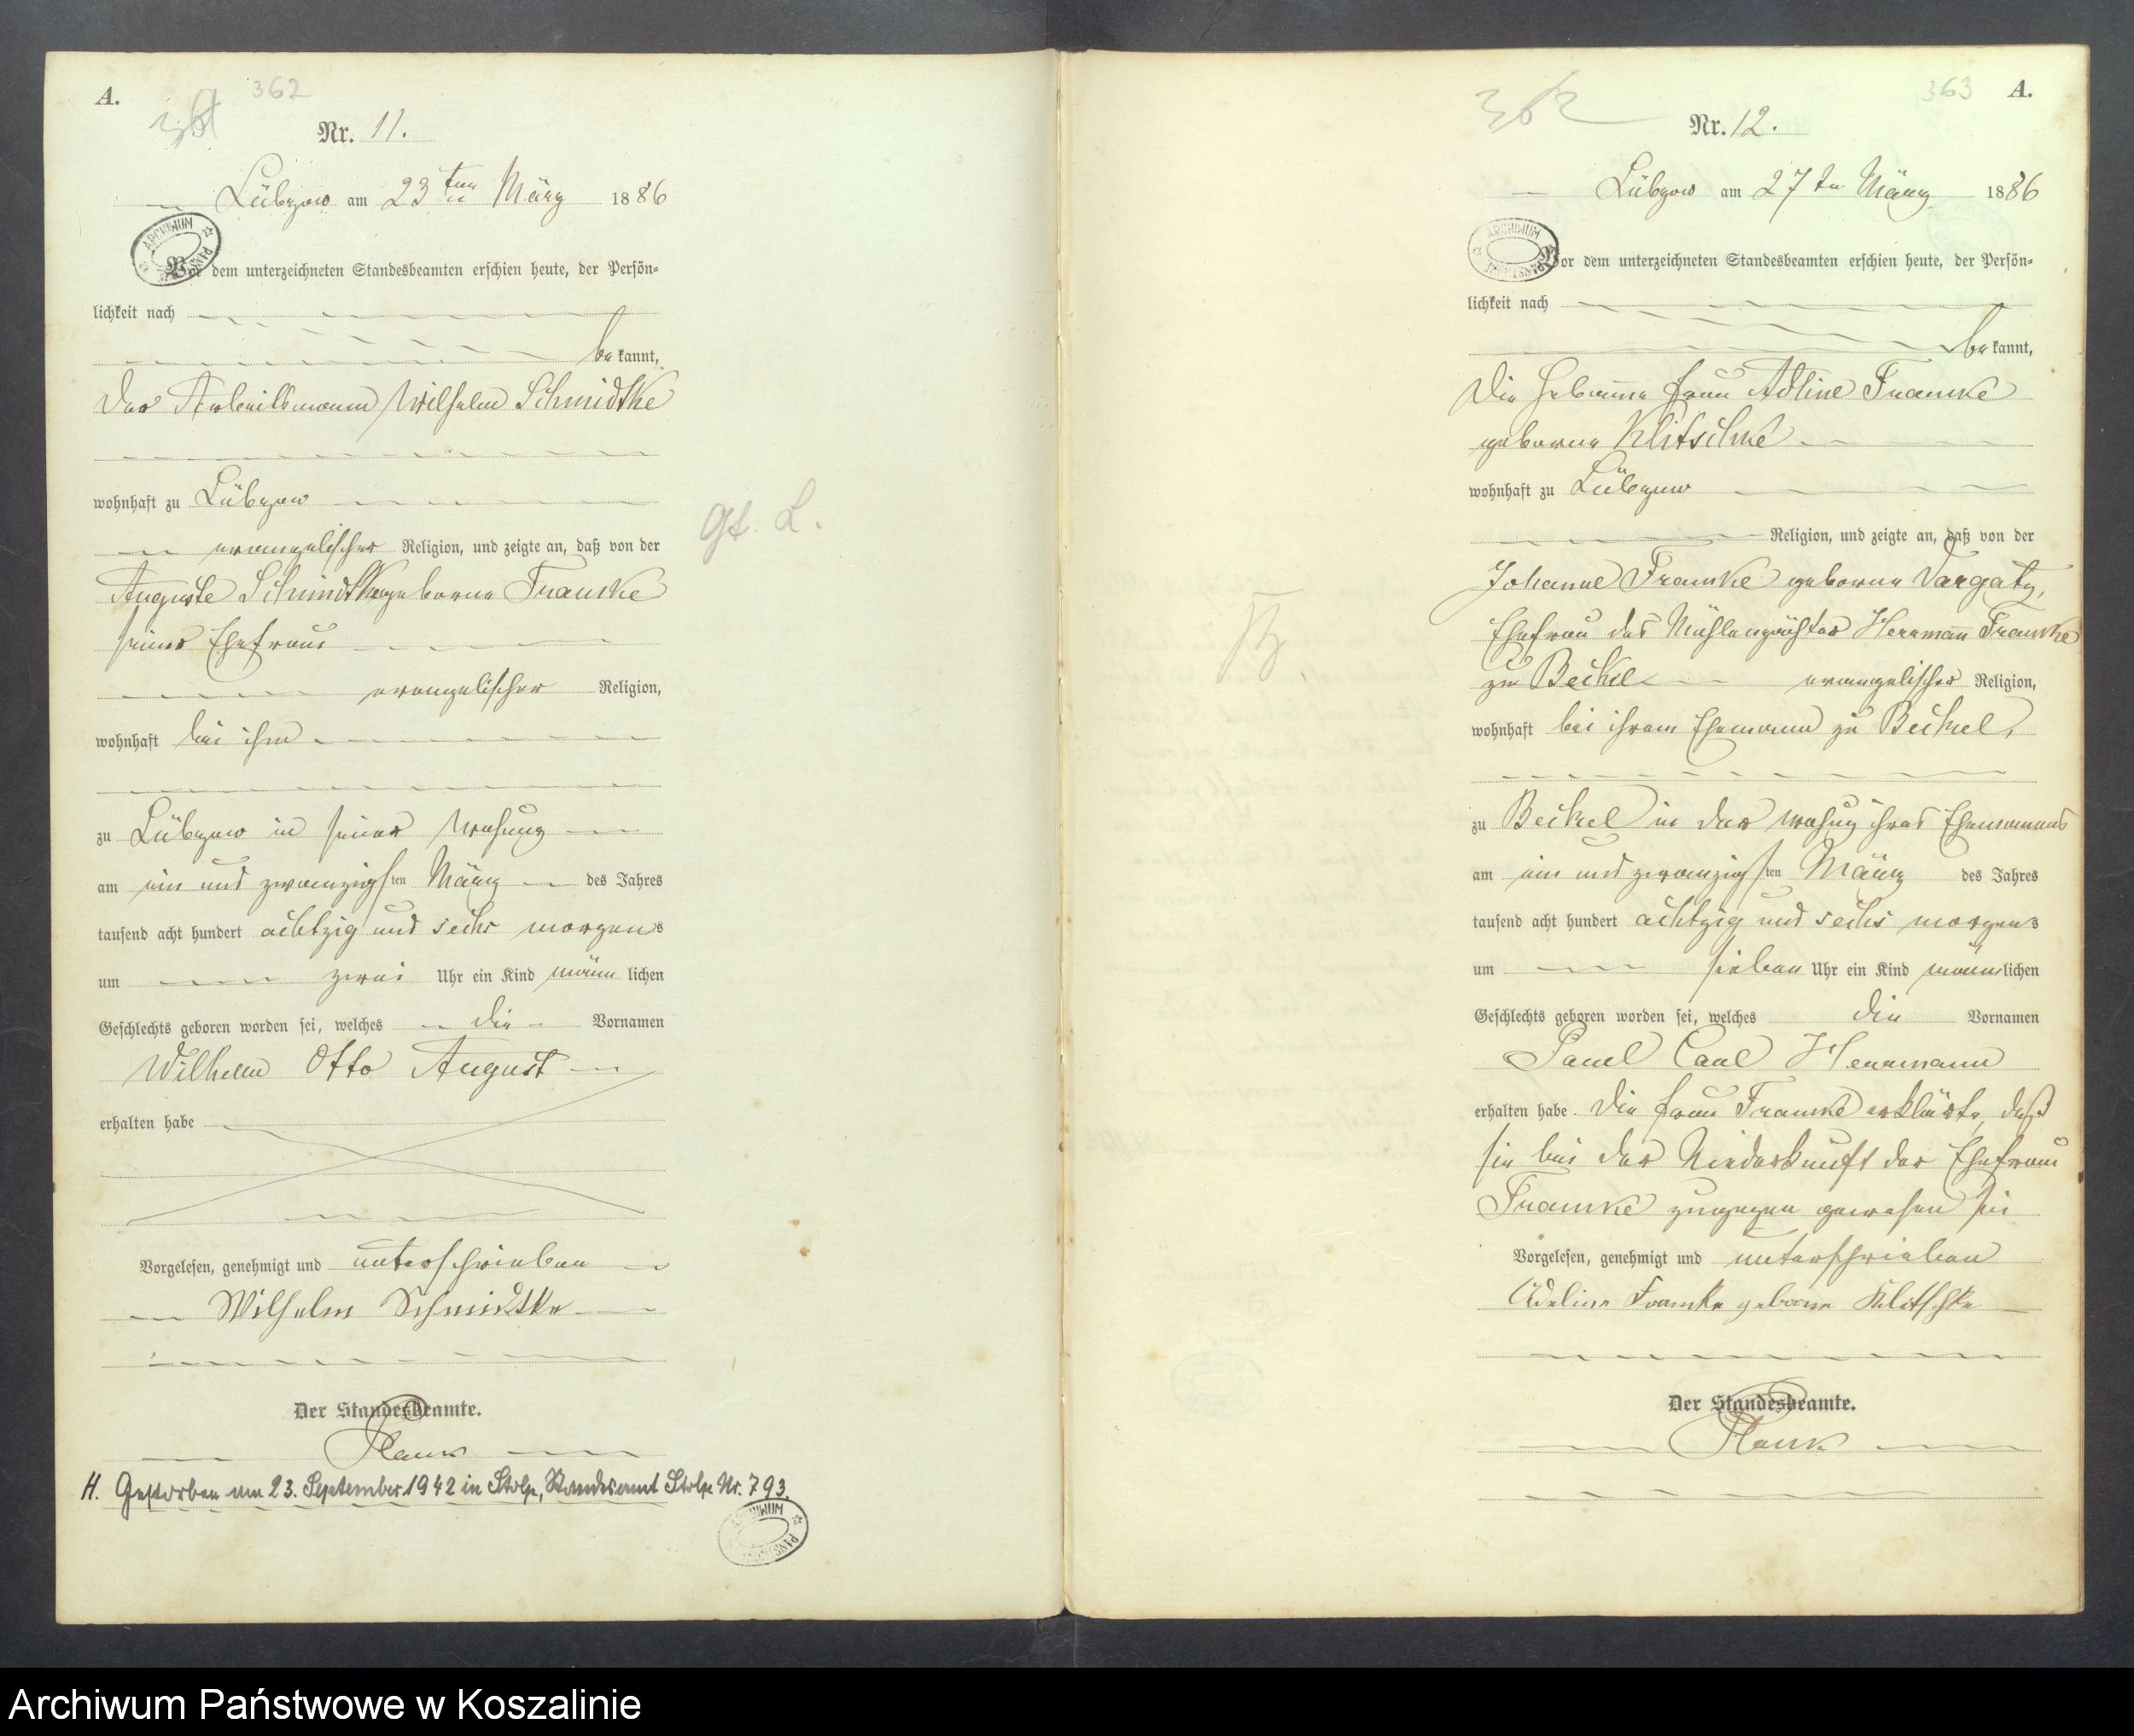 A.
362
Nr. 11.
Lübzow am 23ten März 1886
Vor dem unterzeichneten Standesbeamten erschien heute, der Persön=
lichkeit nach
bekannt,
der Arbeitsmann Wilhelm Schmidtke
wohnhaft zu Lübzow
evangelischer Religion, und zeigte an, daß von der
Auguste Schmidtke geborne Francke
seiner Ehefrau
evangelischer Religion,
wohnhaft bei ihm
zu Lübzow in seiner Wohung
am ein und zwanzigsten März des Jahres
tausend acht hundert achtzig und sechs morgens
um zwei Uhr ein Kind männlichen
Geschlechts geboren worden sei, welches die Vornamen
Wilhelm Otto August
erhalten habe
Vorgelesen, genehmigt und unterschrieben
Wilhelm Schmidtke
Der Standesbeamte.
H. Gestorben am 23. September 1942 in Stolp, Standesamt Stolp Nr. 793.
ARCHIWUM
gt. L.
362
363
A.
Nr. 12.
Lübzow am 27ten März 1886
ARCHIWUM
Vor dem unterzeichneten Standesbeamten erschien heute, der Persön=
lichkeit nach
bekannt,
Die Hebamme Frau Adline Francke
geborne Klitschke
wohnhaft zu Lübzow
Religion, und zeigte an, daß von der
Johanne Francke geborne Vargatz,
Ehefrau des Mühlenpächter Herrmann Francke
zu Beckel evangelischer Religion,
wohnhaft bei ihrem Ehemann zu Beckel,
zu Beckel in der Wohung ihres Ehemannes
am ein und zwanzigsten März des Jahres
tausend acht hundert achtzig und sechs morgens
um sieben Uhr ein Kind männlichen
Geschlechts geboren worden sei, welches die Vornamen
Paul Carl Herrmann
erhalten habe. Die Frau Francke erklärte, daß
sie bei der Niederkunft der Ehefrau
Francke zugegen gewesen sei
Vorgelesen, genehmigt und unterschrieben
Adeline Francke geborne Klitschke
Der Standesbeamte.
Archiwum Państwowe w Koszalinie